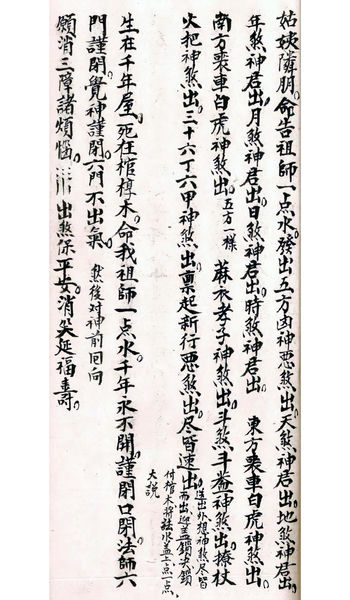 姑姨隣朋。命告祖師一点水。發出五方凶神惡煞出。天煞神君出。地煞神君出。
年煞神君出。月煞神君出。日煞神君出。時煞神君出。　東方喪車白虎神煞出。
南方喪車白虎神煞出。五方一樣　蔴衣孝子神煞出。斗煞斗葢神煞出。撩杖
火把神煞出。三十六丁六甲神煞出。票起新行惡煞出。尽皆速出。送出外短神煞尽皆
而出。迎葢鎖尖鎖
付棺木將法水盖上点一点。
大説
生在千年屋。死在棺槨木。命我祖師一点水。千年永不開。謹閉口閉。法師六
門謹閉。覺神謹閉。六門不出氣。　然後对神前回向
願消三障諸煩惱。出煞保平安。消災延福壽。